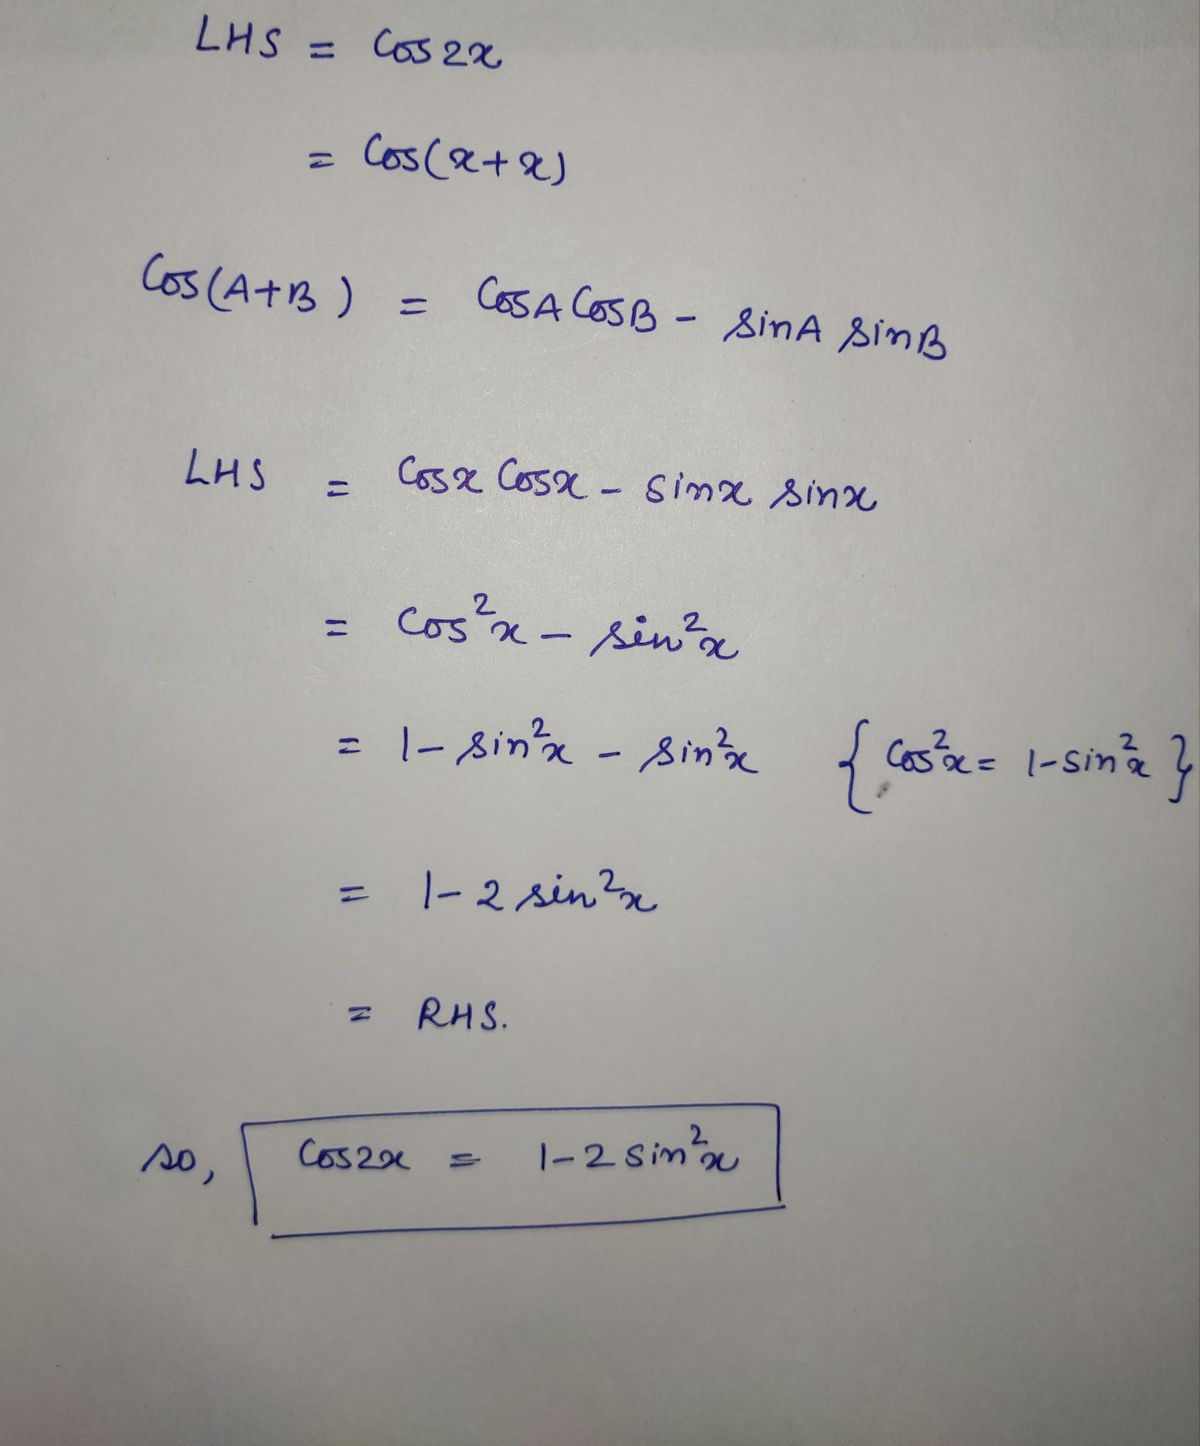 LHS = Cos2x
= Cos(x+x)
Cos(A+B) = CosA CosB - sinA sinB
LHS = Cosx Cosx - sinx sinx
= Cos²x - sin²x
= 1 - sin²x - sin²x {Cos²x = 1-sin²x}
= 1-2 sin²x
= RHS.
so, Cos2x = 1-2 sin²x